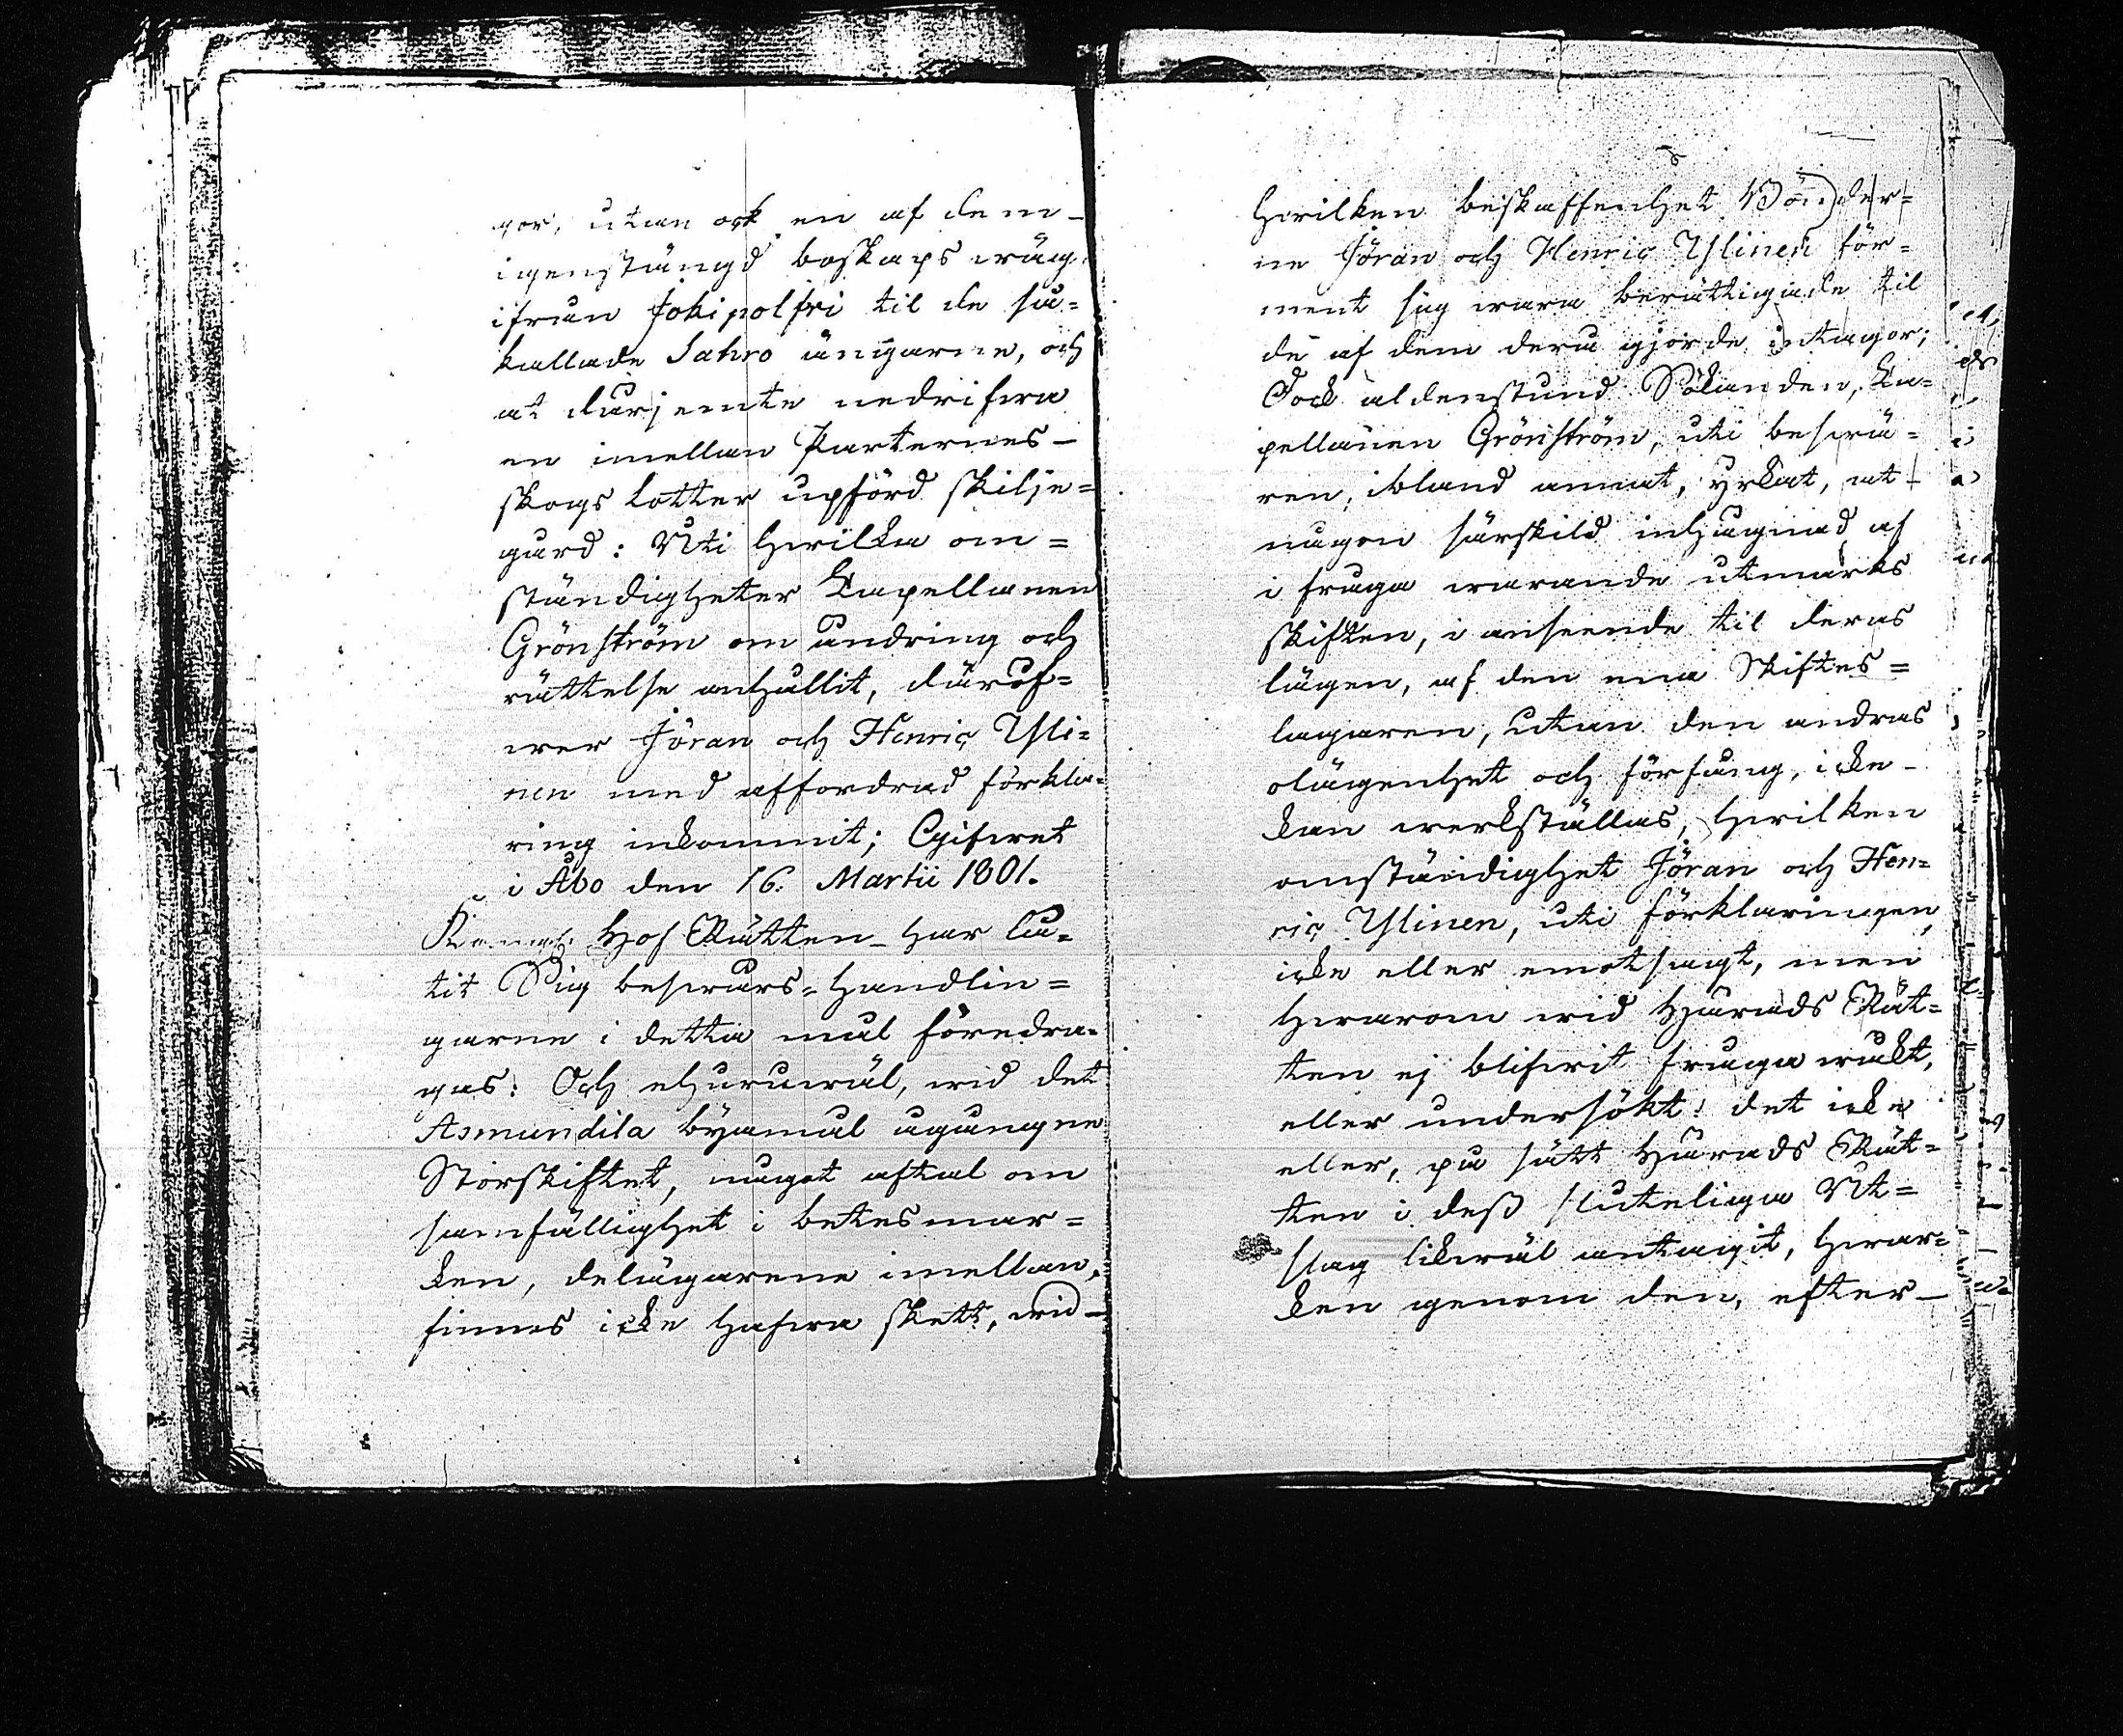 gor, utan ock en af dem
igenstängd boskaps wäg
ifrån Jokipolfvi til de så-
kallade Sahro ängarne, och
at därjemte nedrifwa
en imellan Parternes
skogs Lotter upförd skilje-
gård: Uti hwilka om-
ständigheter Capellanen
Grönström om ändring och
rättelse anhållit, däröf-
wer Jöran och Henric Yli-
nen med affordrad förkla-
ring inkommit; Gifwet
i Åbo den 16. Martii 1801.
Kongl. Hof Rätten har lå-
tit Sig beswärs-handlin-
garne i detta mål föredra-
gas: Och ehuruwäl, wid det
Asmundila byamål ågångne
Storskiftet, något aftal om
samfällighet i betesmar-
ken, delägarene imellan,
finnes icke hafwa skett, wid
hwilken beskaffenhet Bönder-
ne Jöran och Henric Ylinen för-
ment sig wara berättigade til
de af dem derå gjorde intagor;
Dock aldenstund Sökanden, Ca-
pellanen Grönström, uti beswä-
ren, ibland annat, yrkat, at
någon särskild inhägnad af
i fråga warande utmarks
skiften, i anseende til deras
lägen, af den ena Skiftes-
lagaren, utan den andras
olägenhet och förfång, icke
kan werkställas, hwilken
omständighet Jöran och Hen-
ric Ylinen, uti förklaringen,
icke eller emotsagt, men
hwarom wid Härads Rät-
ten ej blifwit fråga wäkt,
eller undersökt: det icke
eller, på sätt Härads Rät-
ten i dess sluteliga Ut-
slag likwäl antagit, hwar-
ken genom den, efter